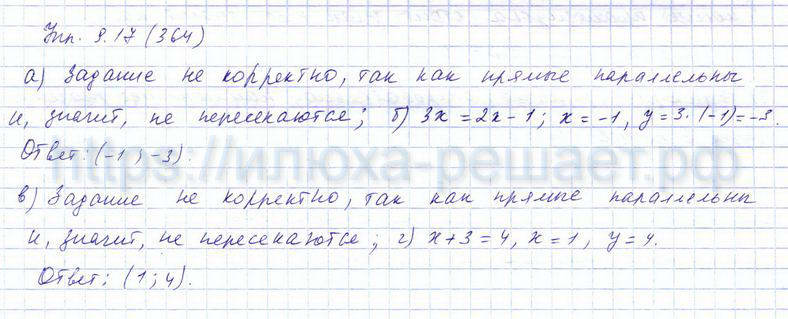 Упр. 9.17 (364)
а) Задание не корректно, так как прямые параллельны
и, значит, не пересекаются; б) 3x = 2x - 1; x = -1, y = 3·(-1) = -3.
Ответ: (-1; -3).
https://илюха-решает.рф
в) Задание не корректно, так как прямые параллельны
и, значит, не пересекаются; г) x + 3 = 4, x = 1, y = 4.
Ответ: (1; 4).